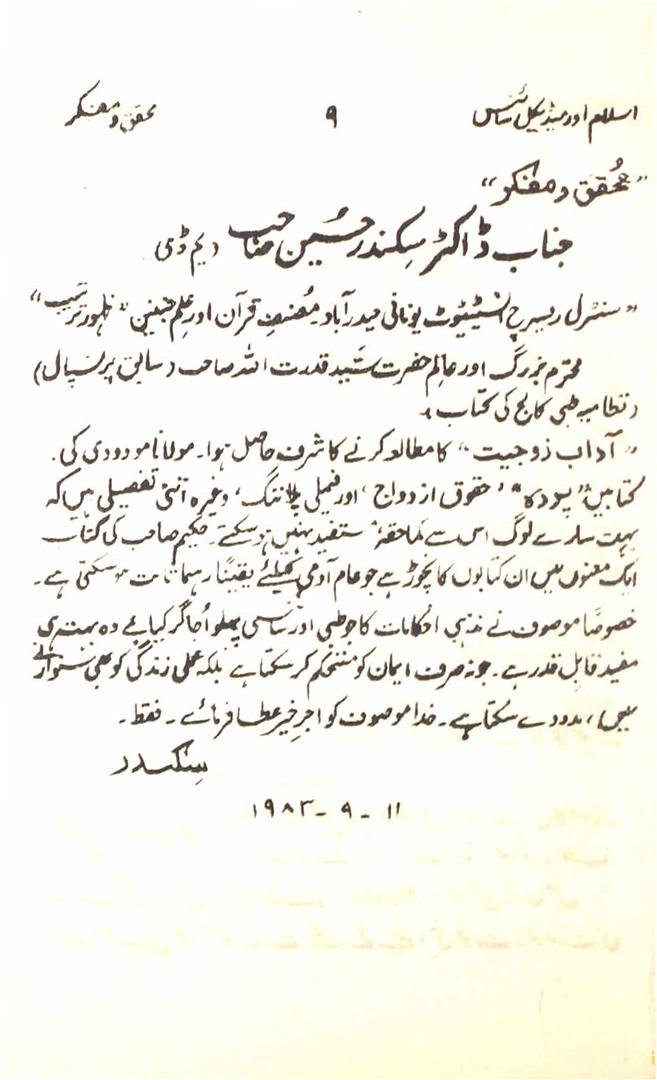 اسلام اور میڈیکل سائنس
۹
محقق و مفکر
"محقق و مفکر"
جناب ڈاکٹر سکندر حسین صاحب (یم ڈی)
"سنٹرل ریسرچ انسٹیٹیوٹ یونانی حیدرآباد۔ مصنف قرآن اور علم جنین" ظہور ترتیب"
محترم بزرگ اور عالم حضرت سید قدرت اللہ صاحب (سابق پرنسپال)
(نظامیہ طبی کالج کی کتاب)
"آداب زوجیت" کا مطالعہ کرنے کا شرف حاصل ہوا۔ مولانا مودودی کی
کتابیں "پردہ" "حقوق ازدواج" اور فیملی پلاننگ، وغیرہ اتنی تفصیلی ہیں کہ
بہت سارے لوگ اس سے مستفید نہیں ہو سکتے۔ حکیم صاحب کی کتاب
ایک معنوں میں ان کتابوں کا نچوڑ ہے جو عام آدمی کیلئے یقیناً رہنما ثابت ہو سکتی ہے۔
خصوصاً موصوف نے مذہبی احکامات کا جو طبی اور سائنسی پہلو اُجاگر کیا ہے وہ بہت ہی
مفید قابل قدر ہے۔ جو نہ صرف ایمان کو مستحکم کر سکتا ہے بلکہ عملی زندگی کو بھی سنوارنے
میں مدد دے سکتا ہے۔ خدا موصوف کو اجر خیر عطا فرمائے۔ فقط۔
سکندر
۱۱ - ۹ - ۱۹۸۳